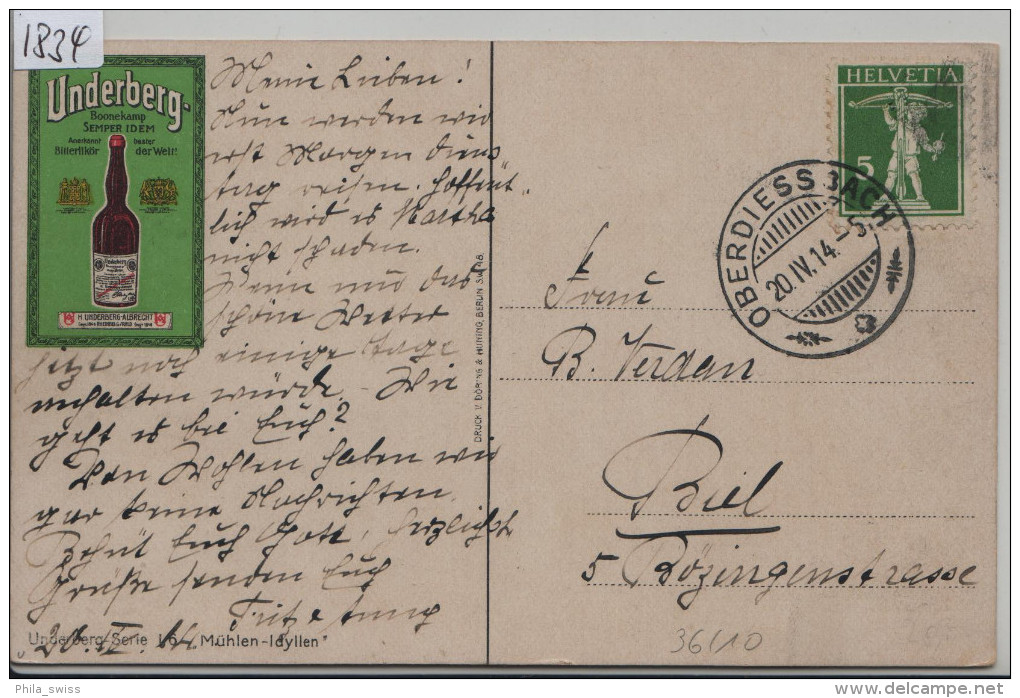 1834
Underberg-
Boonekamp
SEMPER IDEM
Anerkannt bester
Bitterlikör der Welt!
H. UNDERBERG-ALBRECHT
Meine Lieben!
Nun werden wir
erst Morgen Diens
tag reisen. Hoffent-
lich wird es Martha
nicht schaden.
Wenn nur das
schöne Wetter
jetzt noch einige Tage
anhalten würde. – Wie
geht es bei Euch?
Von Wohlen haben wir
gar keine Nachrichten.
Behüt Euch Gott, herzlichst
Grüße senden Euch
Fritz
20. IV. 14.
Underberg-Serie 16 „Mühlen-Idyllen"
DRUCK V. DÖRING & HUNING, BERLIN S.W.48.
HELVETIA
5
OBERDIESSBACH
20.IV.14.-5.
Frau
B. Verdan
Biel
5 Bözingenstrasse
36/10
Phila_swiss
www.delcampe.net